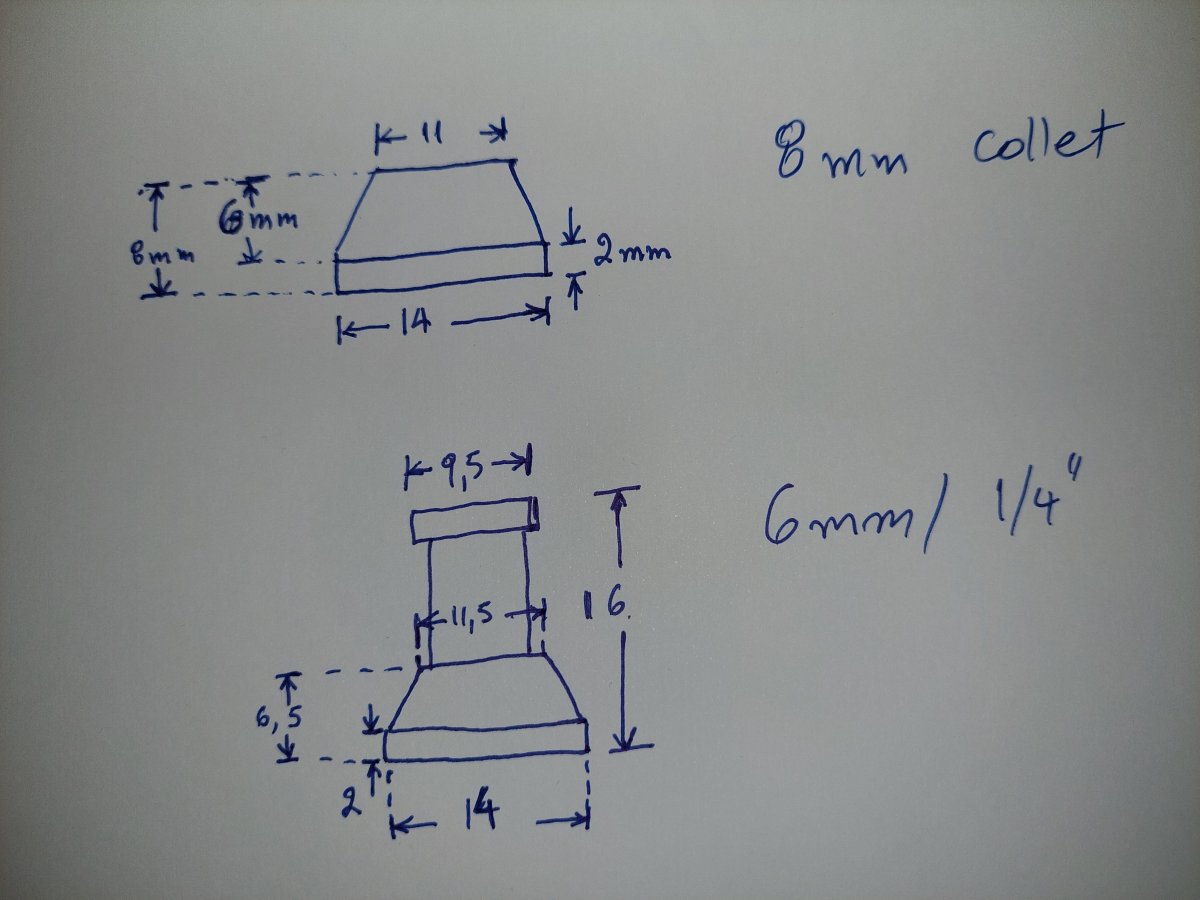 11
8 mm collet
6mm
8mm
2mm
14
9,5
6mm/ 1/4"
11,5
16
6,5
2
14